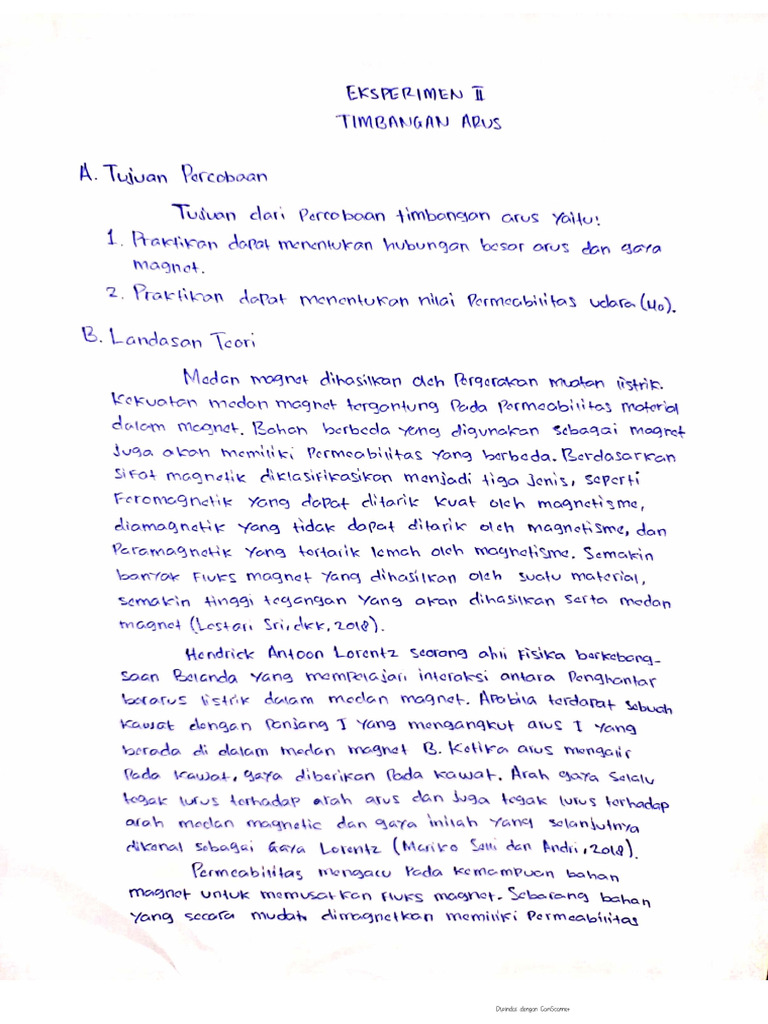 EKSPERIMEN II
TIMBANGAN ARUS
A. Tujuan Percobaan
Tujuan dari Percobaan timbangan arus yaitu:
1. Praktikan dapat menentukan hubungan besar arus dan gaya
magnet.
2. Praktikan dapat menentukan nilai Permeabilitas udara (μo).
B. Landasan Teori
Medan magnet dihasilkan oleh Pergerakan muatan listrik.
Kekuatan medan magnet tergantung Pada Permeabilitas material
dalam magnet. Bahan berbeda yang digunakan sebagai magnet
juga akan memiliki Permeabilitas yang berbeda. Berdasarkan
sifat magnetik diklasifikasikan menjadi tiga jenis, seperti
Feromagnetik yang dapat ditarik kuat oleh magnetisme,
diamagnetik yang tidak dapat ditarik oleh magnetisme, dan
Paramagnetik yang tertarik lemah oleh magnetisme. Semakin
banyak Fluks magnet yang dihasilkan oleh suatu material,
semakin tinggi tegangan yang akan dihasilkan serta medan
magnet (Lestari Sri, dkk, 2018).
Hendrick Antoon Lorentz seorang ahli Fisika berkebang-
saan Belanda yang mempelajari interaksi antara Penghantar
berarus listrik dalam medan magnet. Apabila terdapat sebuah
kawat dengan panjang I yang mengangkut arus I yang
berada di dalam medan magnet B. Ketika arus mengalir
Pada kawat, gaya diberikan Pada kawat. Arah gaya selalu
tegak lurus terhadap arah arus dan juga tegak lurus terhadap
arah medan magnetic dan gaya inilah yang selanjutnya
dikenal sebagai Gaya Lorentz (Mariko Selli dan Andri, 2018).
Permeabilitas mengacu Pada kemampuan bahan
magnet untuk memusatkan Fluks magnet. Sebarang bahan
yang secara mudah dimagnetkan memiliki Permeabilitas
Dipindai dengan CamScanner